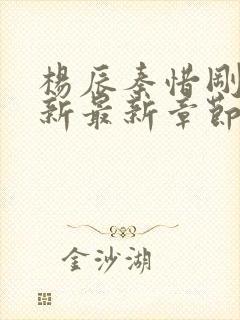 楊辰秦惜剛
新最新章節
金沙湖